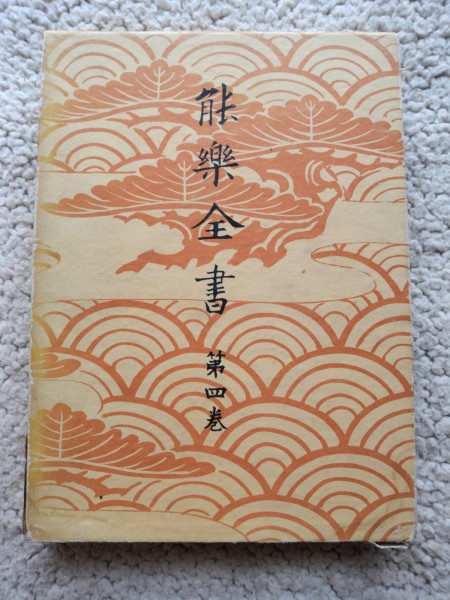 能樂全書
第四巻